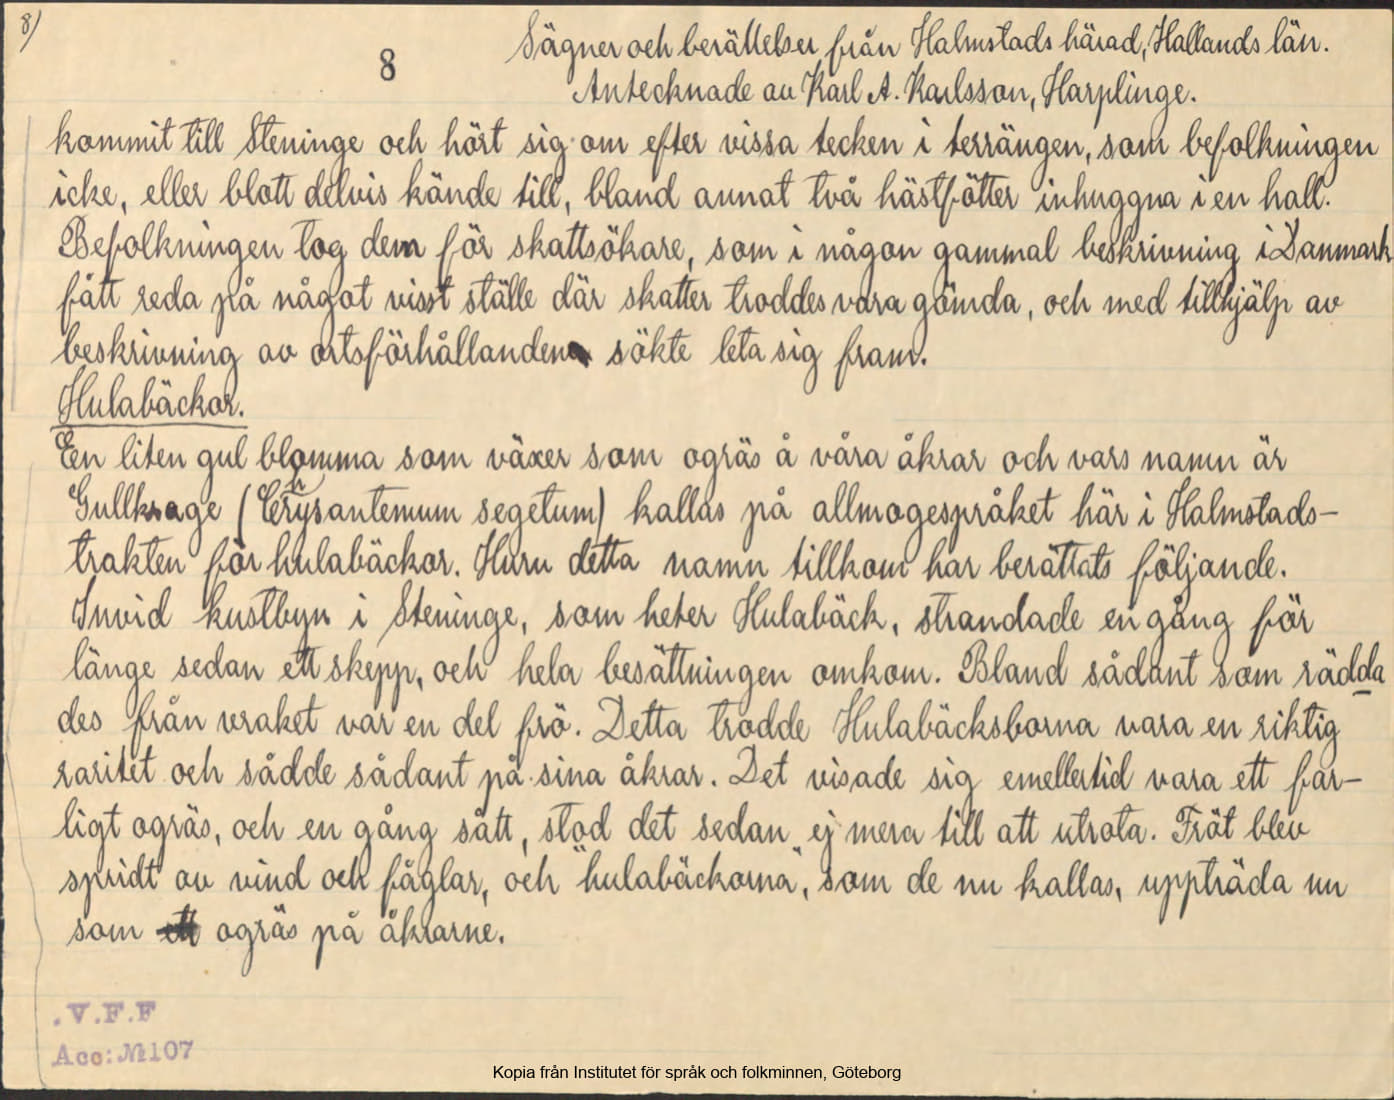 8)
8
Sägner och berättelser från Halmstads härad, Hallands län.
Antecknade av Karl A. Karlsson, Harplinge.
kommit till Steninge och hört sig om efter vissa tecken i terrängen, som befolkningen
icke, eller blott delvis kände till, bland annat två hästfötter inhuggna i en hall.
Befolkningen tog dem för skattsökare, som i någon gammal beskrivning i Danmark
fått reda på något visst ställe där skatter troddes vara gömda, och med tillhjälp av
beskrivning av ortsförhållanden sökte leta sig fram.
Hulabäckor.
En liten gul blomma som växer som ogräs å våra åkrar och vars namn är
Gullkrage (Chrysantemum segetum) kallas på allmogespråket här i Halmstads-
trakten för hulabäckor. Huru detta namn tillkom har berättats följande.
Invid kustbyn i Steninge, som heter Hulabäck, strandade en gång för
länge sedan ett skepp, och hela besättningen omkom. Bland sådant som rädda
des från vraket var en del frö. Detta trodde Hulabäcksborna vara en riktig
raritet och sådde sådant på sina åkrar. Det visade sig emellertid vara ett far-
ligt ogräs, och en gång sått, stod det sedan ej mera till att utrota. Fröt blev
spridt av vind och fåglar, och "hulabäckorna", som de nu kallas, uppträda nu
som ett ogräs på åkrarne.
.V.F.F
Acc: № 107
Kopia från Institutet för språk och folkminnen, Göteborg